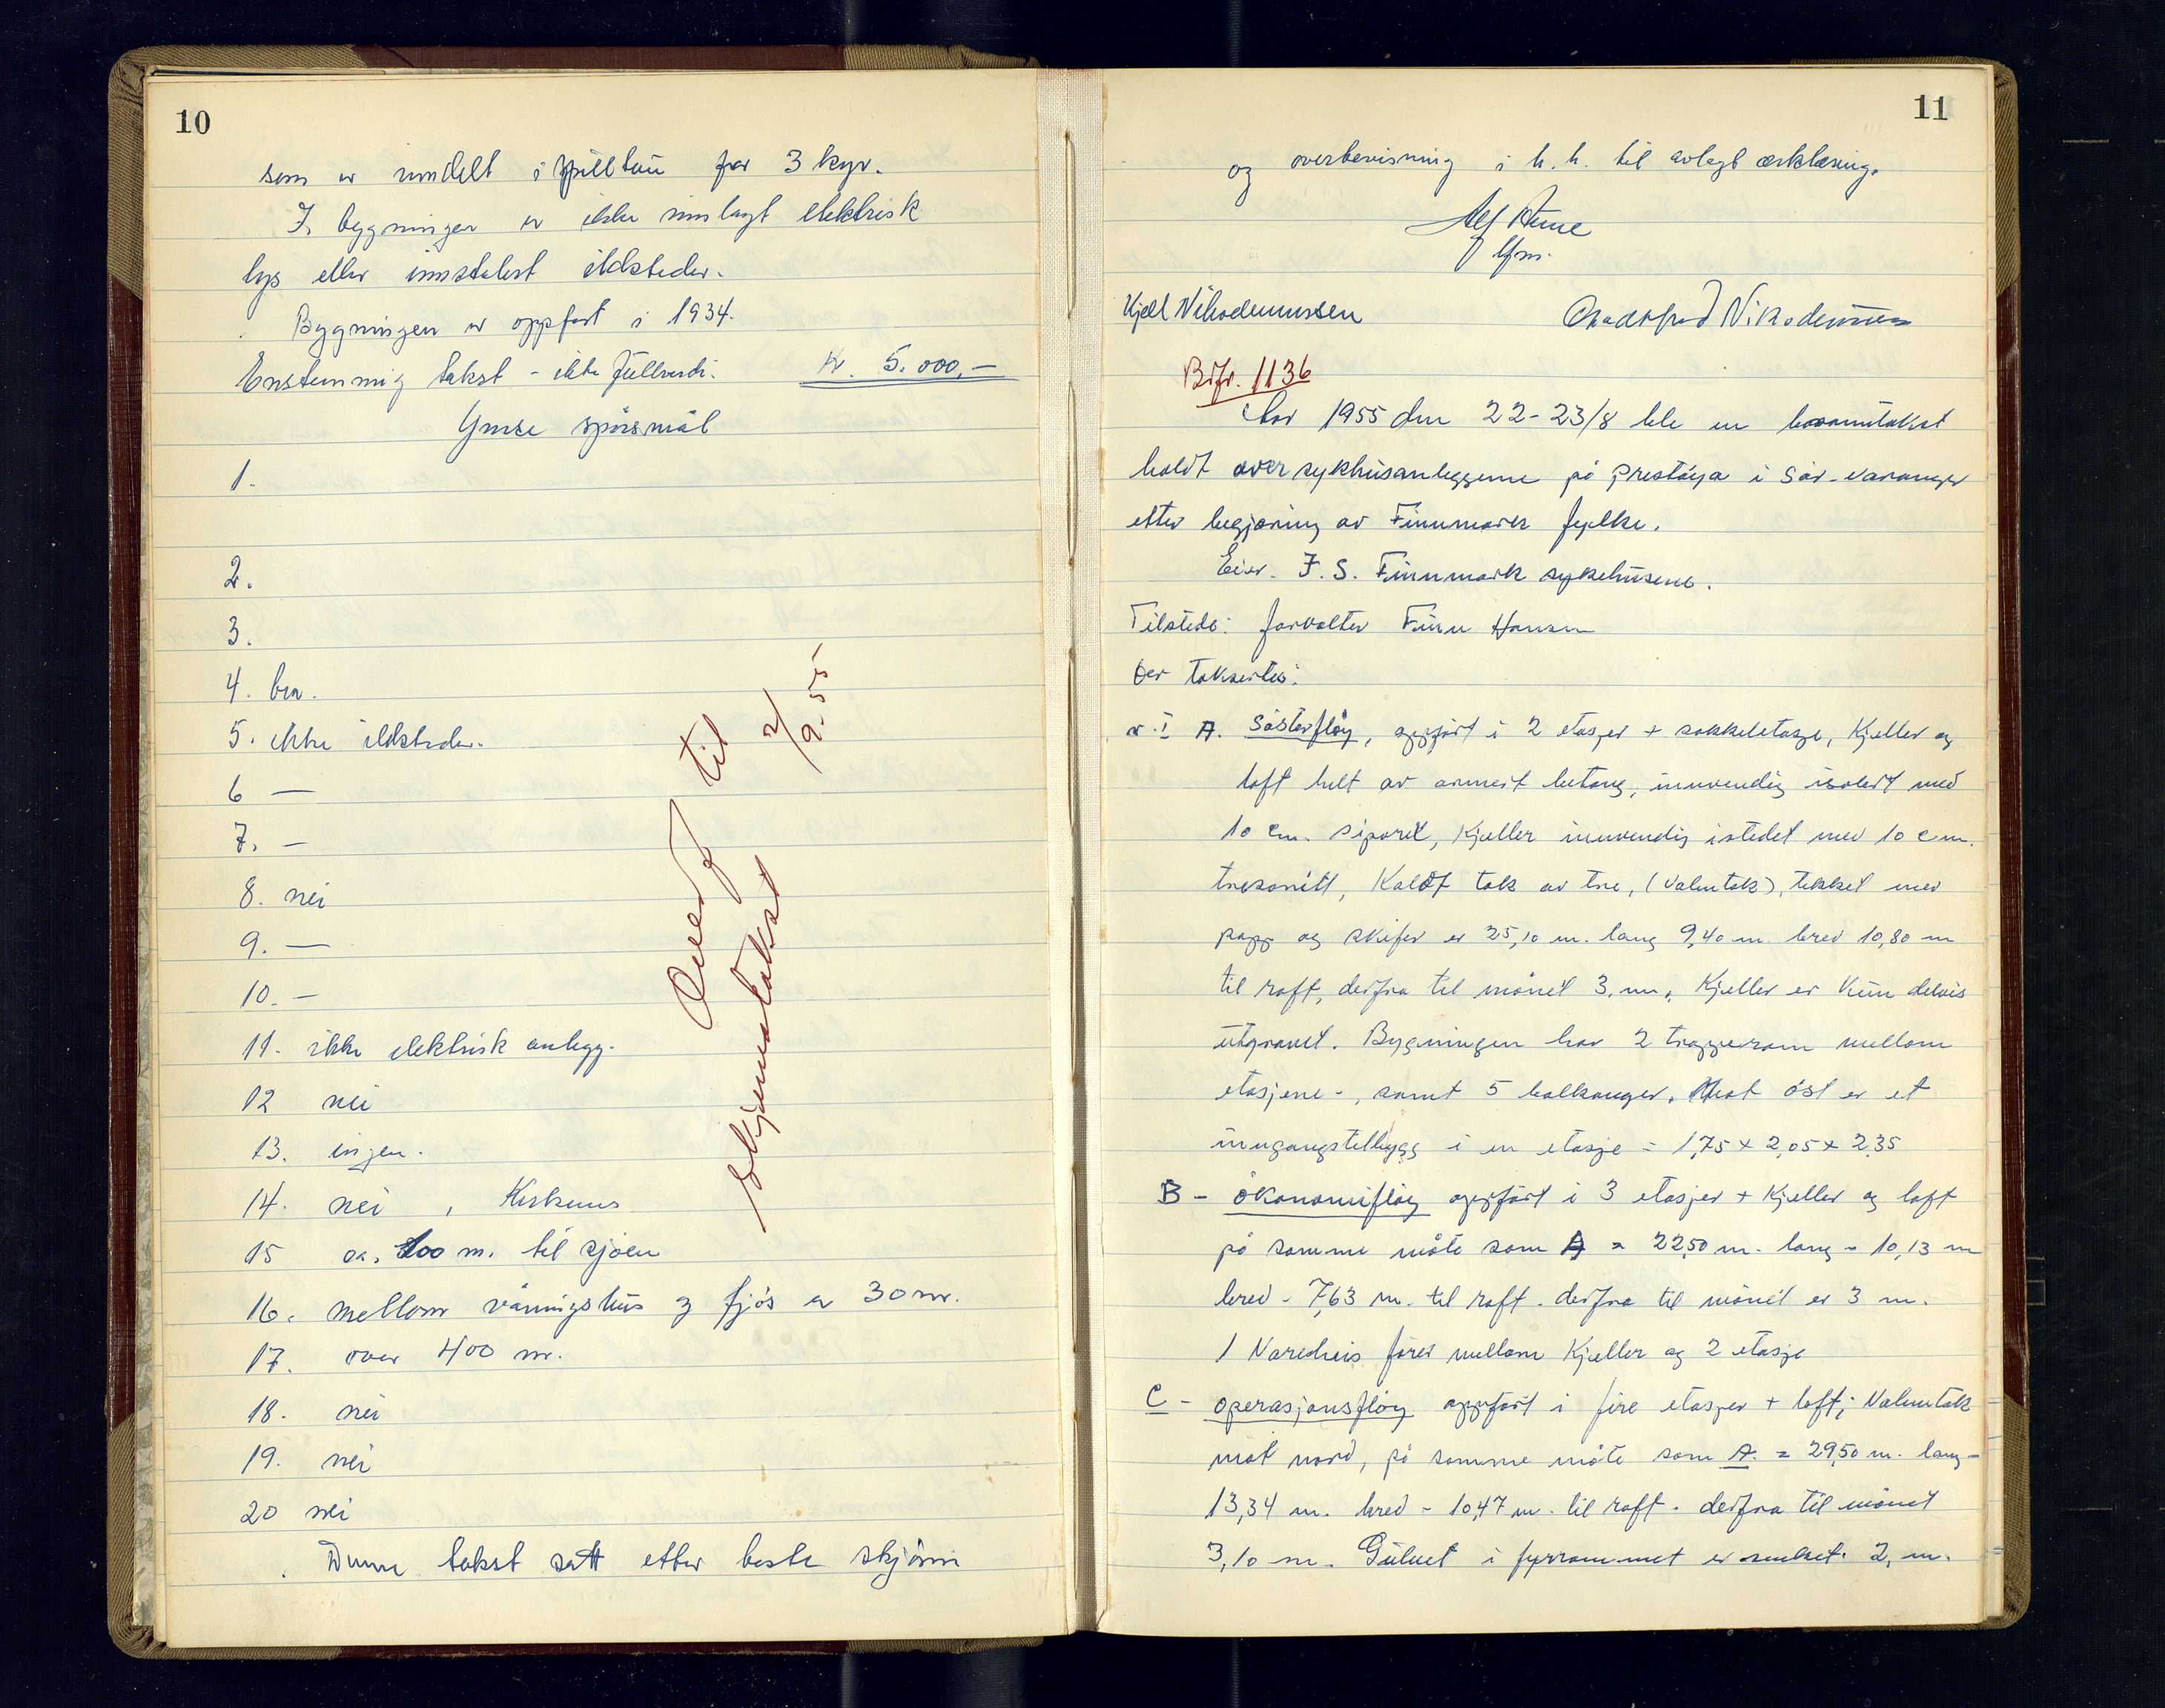 10
som er inndelt i spilltau for 3 kyr.
I. bygningen er ikke innlagt elektrisk
lys eller innstalert ildsteder.
Bygningen er oppført i 1934.
Enstemmig takst - ikke fullverdi. Kr. 5.000,-
Ymse spörsmål
1.
2.
3.
4. bra.
5. ikke ildsteder.
6 —
7. —
8. nei
9. —
10. —
11. ikke elektrisk anlegg.
12 nei
13. ingen.
14. nei , Kirkenes
15 ca. 200 m. til sjöen
16. mellom våningshus og fjös er 30 m.
17. over 400 m.
18. nei
19. nei
20 nei
Denne takst satt etter beste skjönn
til
skjematakst
2/9-55
11
og overbevisning i h.h. til avlagt erklæring.
Alf
lfm.
Kjell Nikodemussen Nikodemussen
Brfr. 1136
Aar 1955 den 22-23/8 ble en branntakst
holdt over sykhusanleggene på Prestöya i Sör-Varanger
etter begjæring av Finnmark fylke.
Eier. I.S. Finnmark sykehusene.
Tilstede: forvalter Finn Hansen
Der takserter:
nr. I A. Sösterflöy, oppfört i 2 etasjer + sokkeletasje, Kjeller og
loft helt av armert betong, innvendig isolert med
10 cm. siporit, Kjeller innvendig istedet med 10 cm.
tresonitt, Kaldt tak av tre, (Valmtak), tekket med
papp og skifer er 25,10 m. lang 9,40 m. bred 10,80 m
til raft, derfra til mönet 3. m. Kjeller er kun delvis
utgravet. Bygningen har 2 trapperom mellom
etasjene-, samt 5 balkonger. Mot öst er et
inngangstilbygg i en etasje = 1,75 x 2,05 x 2,35
B - Ökonomiflöy oppfört i 3 etasjer + Kjeller og loft
på samme måte som A = 22,50 m. lang - 10,13 m
bred - 7,63 m. til raft. derfra til mönet er 3 m.
1 Vareheis förer mellom Kjeller og 2 etasje
C - operasjonsflöy oppfört i fire etasjer + loft; Valmtak
mot nord, på samme måte som A. = 29,50 m. lang -
13,34 m. bred - 10,47 m. til raft. derfra til mönet
3,10 m. Gulvet i fyrrommet er senket 2, m.